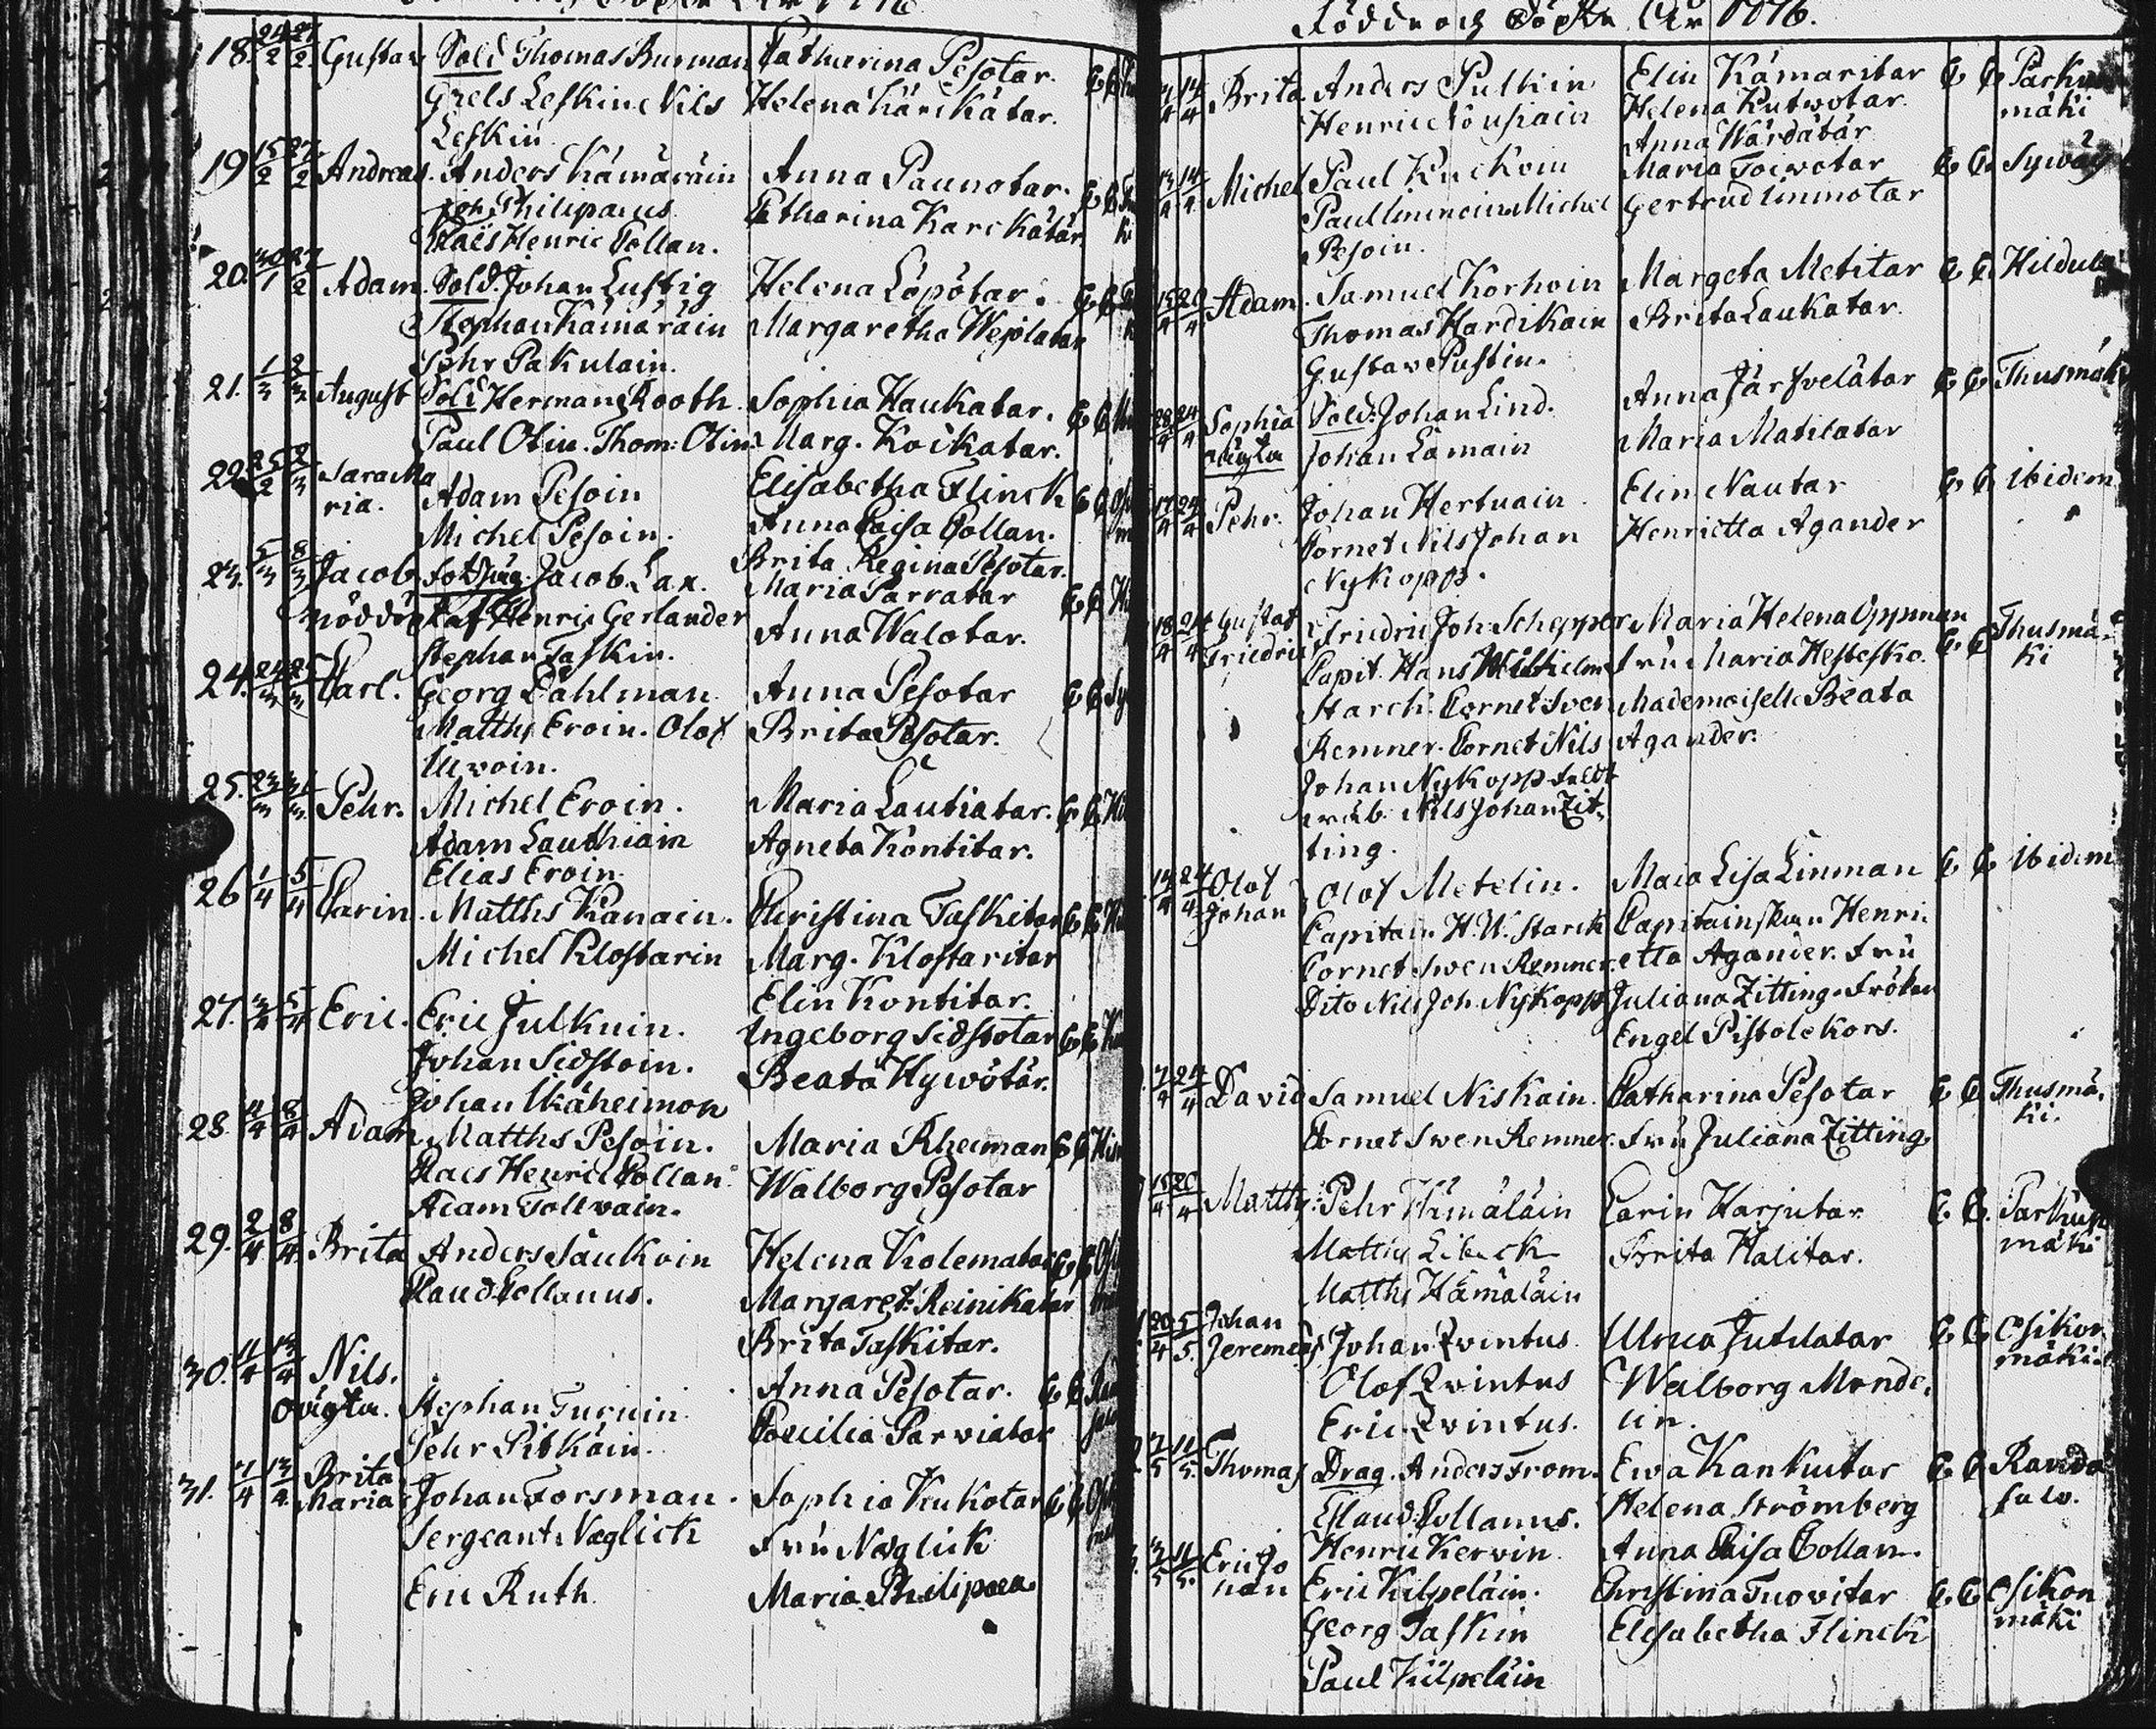 Födde och Döpte År 1776.
18. 24/2 27/2 Gustav Sold Thomas Burman Catharina Pesotar. E E
Grels Leskin Nils Helena Kärckätar.
Leskin
19 15/2 27/2 Andreas. Anders Kämäräin Anna Paunotar. E E
Joh. Philipaeus Catharina Karckatar
Claes Henric Collan.
20. 30/1 27/2 Adam. Sold. Johan Lustig Helena Löpötar. E E
Stephan Kämäräin Margaretha Wepsätar
Pehr Pakulain.
21. 1/3 2/3 August Sold Herman Rooth. Sophia Haukatar. E E
Paul Olin. Thom: Olin Marg. Koikatar.
22. 25/2 2/3 Sara Ma
ria. Adam Pesoin Elisabetha Flinck E E
Michel Pesoin. Anna Caisa Collan.
Brita Regina Pesotar.
23. 5/3 8/3 Jacob Jacob Lax. Maria Parratar E E
Henric Gerlander Anna Walotar.
Stephan Taskin.
24. 24/3 25/3 Carl. Georg Dahlman Anna Pesotar E E
Matths Eroin. Olof Brita Pesotar.
Uivoin.
25. 23/3 31/3 Pehr. Michel Eroin. Maria Lautiatar. E E
Adam Lauthiain Agneta Kontitar.
Elias Eroin.
26 1/4 5/4 Carin. Matths Kanain. Christina Taskitar E E
Michel Klostarin Marg. Klostaritar
Elin Kontitar.
27. 3/4 5/4 Eric. Eric Julkuin. Ingeborg Sidstotar E E
Johan Sidstoin. Beata Hywötär.
Johan Ikäheimon
28. 4/4 8/4 Adam Matths Pesoin. Maria Rheiman E E
Claes Henric Collan Walborg Pesotar
Adam Tollvain.
29. 2/4 8/4 Brita Anders Säukoin Helena Kolematar E E
Claud Collanus. Margaret: Reinikatar
Brita Taskitar.
30. 11/4 13/4 Nils. Anna Pesotar. E E
oäigta. Stephan Turuin Caecilia Parviatar
Pehr Pitkäin.
31. 11/4 13/4 Brita
Maria Johan Forsman. Sophia Kukotar E E
Sergeant Næglick Fru Næglick
Eric Ruth. Maria Philipaea.
Födde och Döpte År 1776.
14/4 Brita Anders Pulkin Elin Kämaritar E E Parkun
Henric Nousiain Helena Kutwotar. mäki
Anna Wärdätär
13/4 14/4 Michel Paul Kuckoin Maria Toiwotar E E Sywäis
Paul Immoin Michel Gertrud Immotar
Pesoin.
15/4 20/4 Adam Samuel Korhoin Margeta Metitar E E Hildula
Thomas Hardikain Brita Laukatar.
Gustav Pustin.
Sophia Sold: Johan Lind. Anna Järfvelätar E E Thusmäki
oägta Johan Lämain Maria Matilatar
17/4 24/4 Pehr. Johan Hertuain Elin Nautar E E Ibidem
Cornet Nils Johan Henrietta Agander
Nykopp.
18/4 24/4 Gustaf
Friedric Friedric Joh: Schepper Maria Helena Oppman E E Thusmä-
Capit. Hans Wilhelm Fru Maria Hestesko. ki
Starck. Cornet Sven Mademoiselle Beata
Remner. Cornet Nils Agander.
Johan Nykopp
Nils Johan Zit-
ting.
19/4 24/4 Olof
Johan Olof Metelin. Maia Lisa Linman E E Ibidem
Capitain H. W. Starck Capitainskan Henri-
Cornet Swen Remner. etta Agander. Fru
Dito Nils Joh. Nykopp Juliana Zitting. Fröken
Engel Pistolekors.
24/4 David Samuel Niskain. Catharina Pesotar E E Thusmä-
ki.
Cornet Swen Remner. Fru Juliana Zitting.
Matths: Pehr Hämäläin Carin Harjutar E E Parkun
mäki
Matths Libeck Brita Halitar.
Matths Hämäläin
20/4 5/5 Johan
Jeremias Johan Qvintus. Ulrica Jutilatar E E Osikon
mäki.
Olof Qvintus Walborg Monde-
Eric Qvintus. lin.
7/5 11/5 Thomas Drag. Anders From. Ewa Kankutar E E Randa
salo.
Claud: Collanus. Helena Strömberg
Henric Kervin Anna Caisa Collan.
3/5 11/5 Eric Jo
han Eric Kilpeläin. Christina Tuovitar E E Osikon
mäki
Georg Taskin Elisabetha Flinck
Paul Kilpeläin